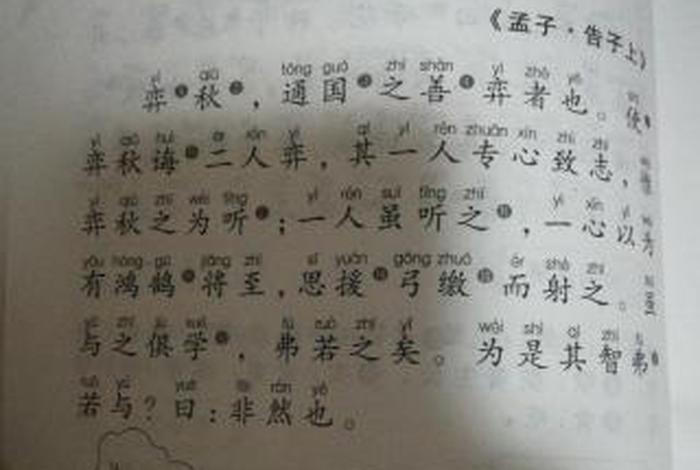 《孟子·告子上》
yì qiū tōng guó zhī shàn yì zhě yě
弈秋，通国之善弈者也。使
yì qiū huì èr rén yì qí yì rén zhuān xīn zhì zhì
弈秋诲二人弈，其一人专心致志，惟
yì qiū zhī wéi tīng yì rén suī tīng zhī yì xīn yǐ wéi
弈秋之为听；一人虽听之，一心以为
yǒu hóng hú jiāng zhì sī yuán gōng zhuó ér shè zhī
有鸿鹄将至，思援弓缴而射之。虽
yǔ zhī jù xué fú ruò zhī yǐ wèi shì qí zhì fú
与之俱学，弗若之矣。为是其智弗
ruò yú yuē fēi rán yě
若与？曰：非然也。